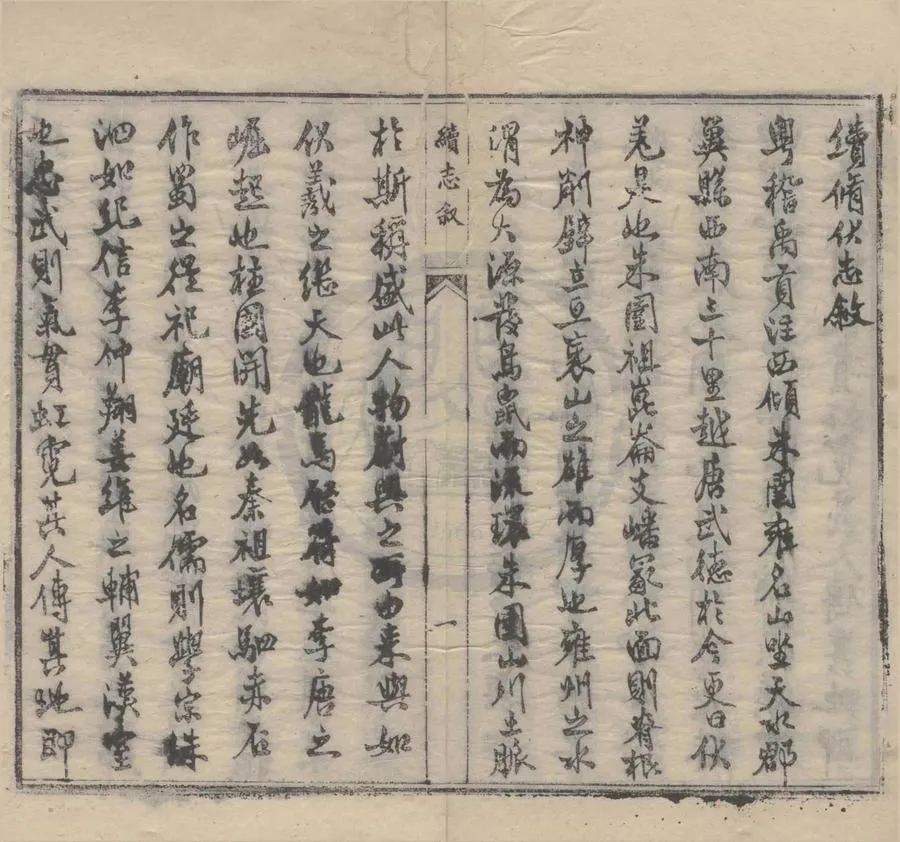 續脩伏志敘
粵稽禹貢注西傾朱圉雍名山坐天水郡
冀縣西南三十里越唐武德於今更曰伏
羌是地朱圉祖崑崙支嶓冢北面則脊根
神削壁立亘袤山之雄而厚也雍州之水
渭為大源發鳥鼠而流環朱圉山川之脈
續志敘
一
於斯稱盛此人物蔚興之所由来與如
伏羲之继天也龍馬啓符如李唐之
崛起也柱國開先如秦祖壤駟赤石
作蜀之從祀廟廷也名儒則學宗洙
泗如紀信李仲翔姜維之輔翼漢室
也忠武則氣貫虹霓其人傳其地即